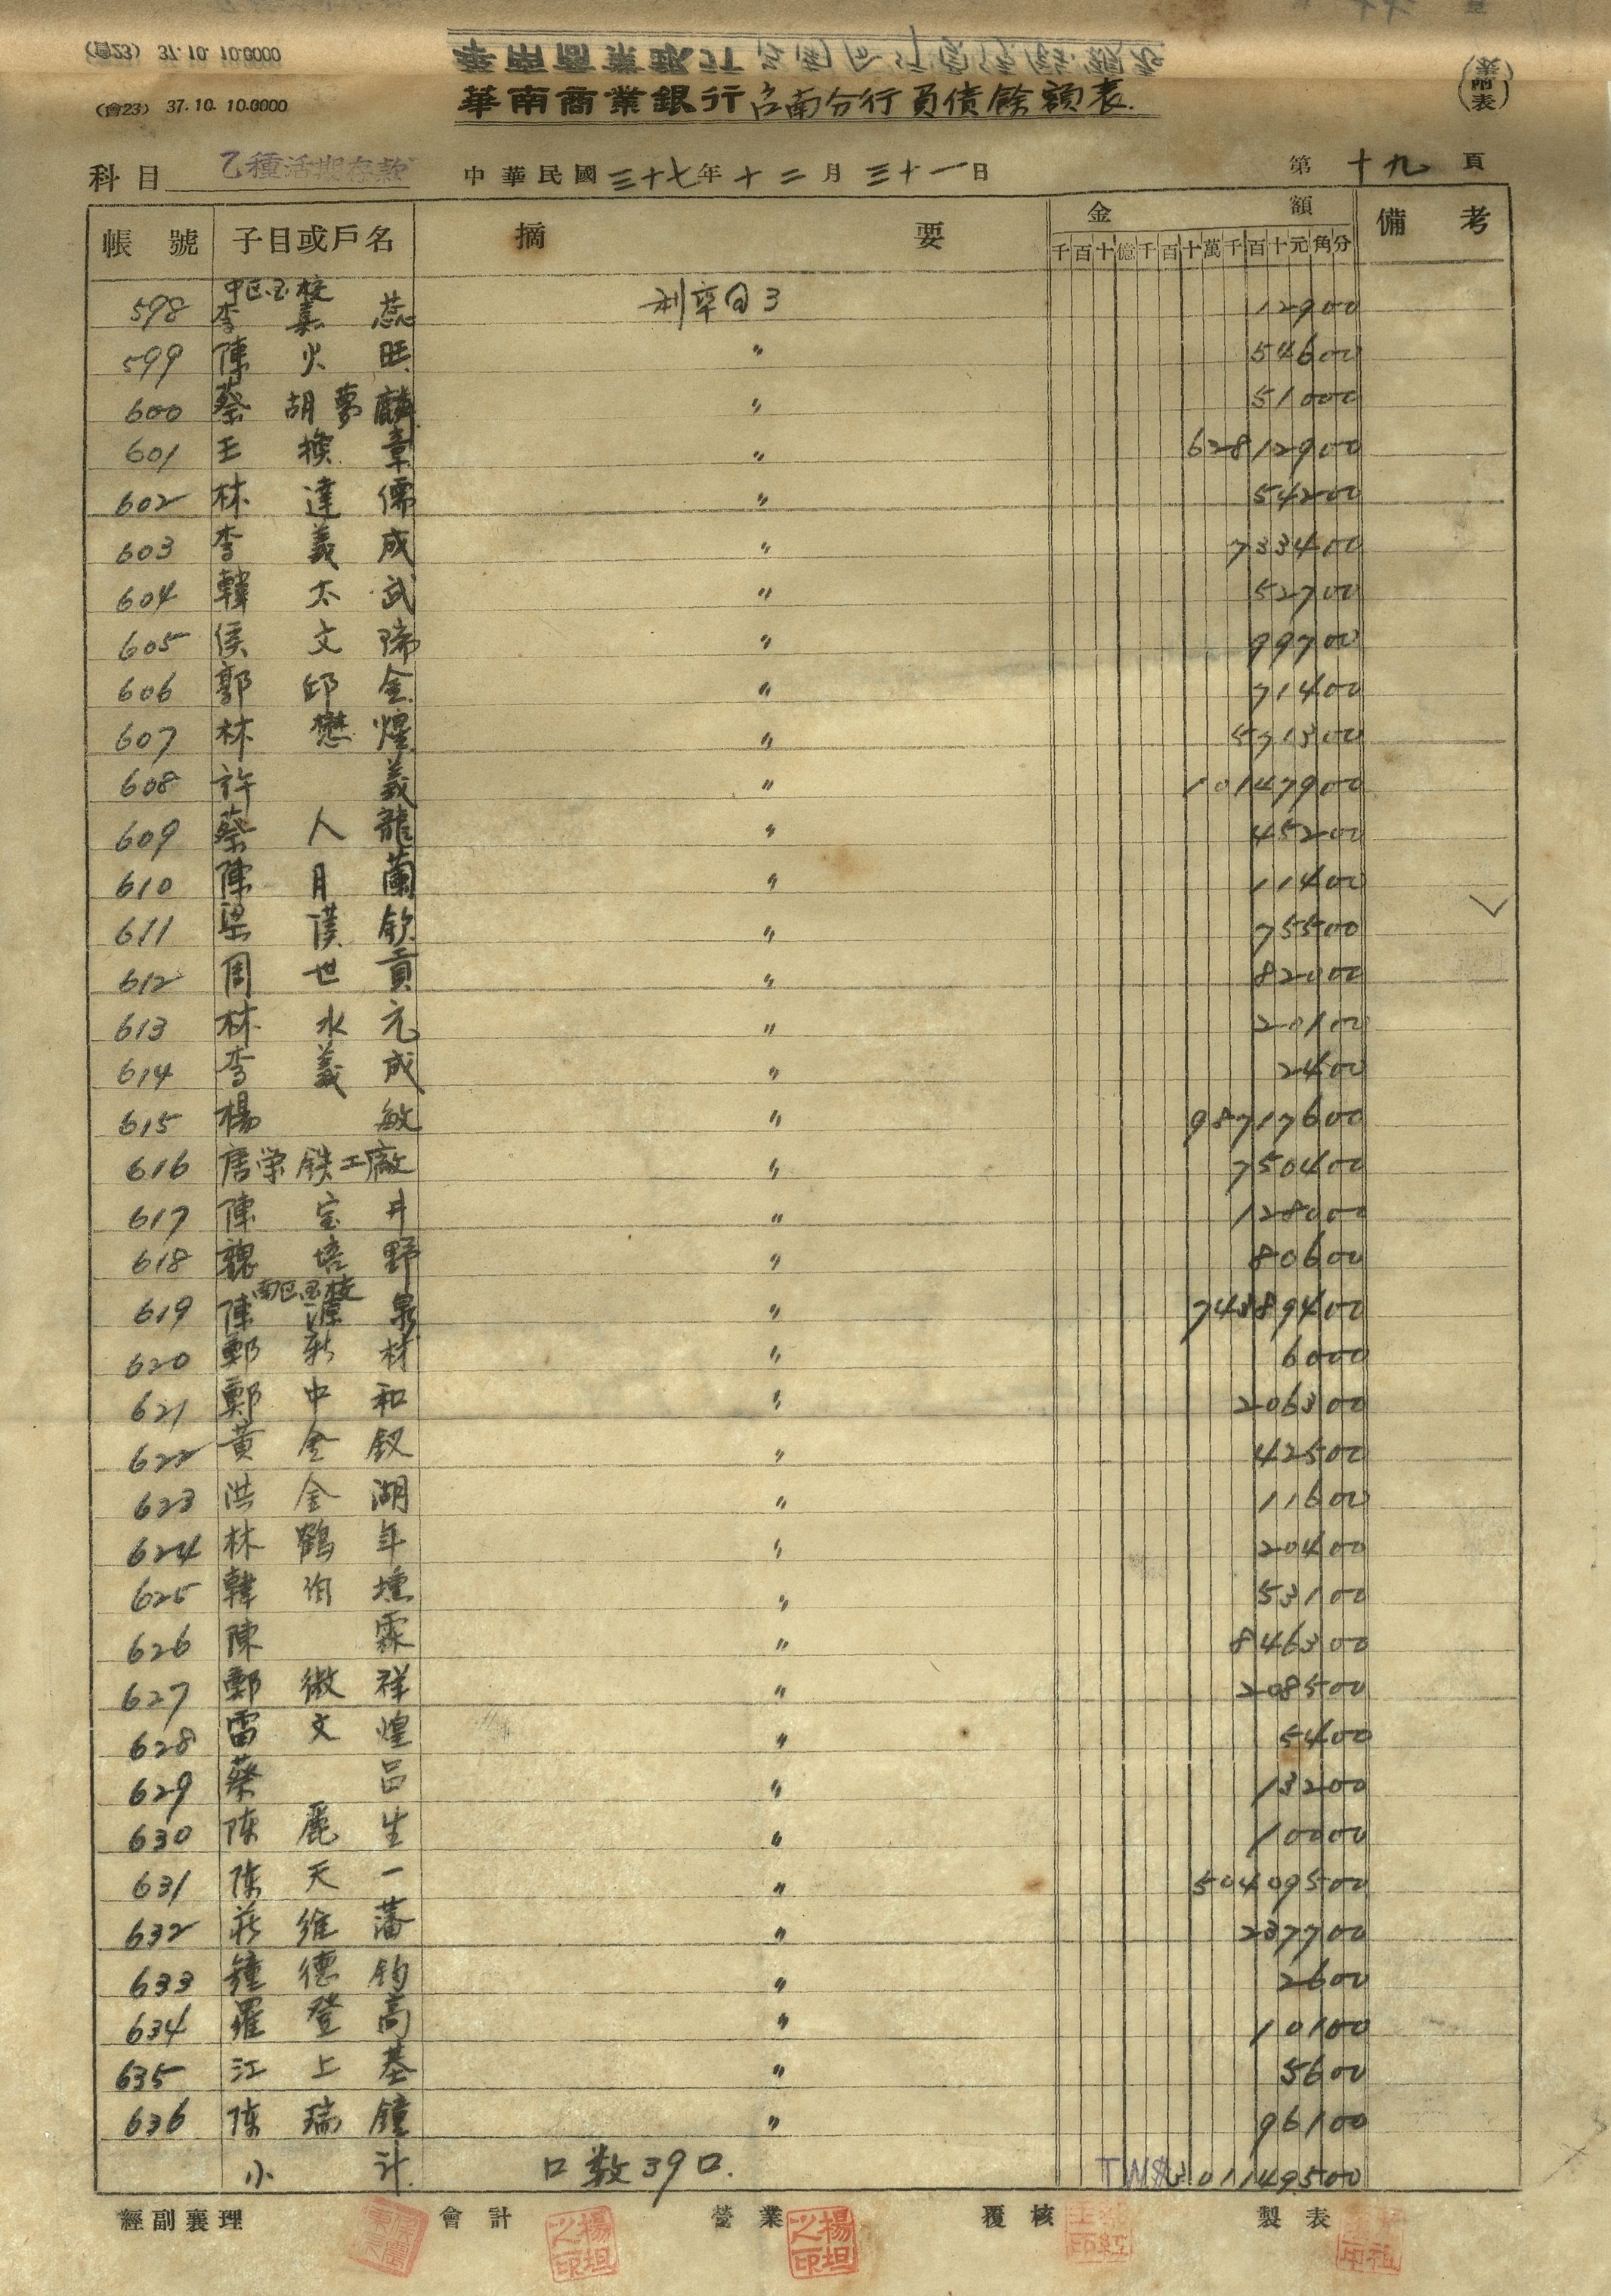 (會23) 37.10. 10.0000
華南商業銀行台南分行負債餘額表
(附表)
科目 乙種活期存款 中華民國三十七年十二月三十一日 第十九頁
帳號 子目或戶名 摘要 金額 備考
千百十億千百十萬千百十元角分
中区国校
598 李嘉蕊 利率日3 12900
599 陳火旺 〃 54600
600 蔡胡夢麟 〃 51000
601 王換章 〃 62812900
602 林達儒 〃 54200
603 李義成 〃 733400
604 韓太武 〃 52700
605 侯文瑞 〃 99700
606 郭邱金 〃 71400
607 林懋煌 〃 571300
608 許義 〃 10147900
609 蔡人龍 〃 45200
610 陳月蘭 〃 11400
611 梁漢欽 〃 75500
612 周世貢 〃 82000
613 林水元 〃 20100
614 李義成 〃 2400
615 楊敏 〃 98717600
616 唐栄鉄工廠 〃 750400
617 陳宝井 〃 128000
618 魏培野 〃 80600
南区国校
619 陳源泉 〃 74389400
620 鄭新材 〃 6000
621 鄭中和 〃 206300
622 黃金釵 〃 42500
623 洪金湖 〃 11600
624 林鶴年 〃 20400
625 韓伯壎 〃 53100
626 陳霖 〃 846300
627 鄭微祥 〃 208500
628 雷文煌 〃 5400
629 蔡呂 〃 13200
630 陳麗生 〃 10000
631 陳天一 〃 50409500
632 莊維藩 〃 237700
633 鐘德鈞 〃 2600
634 羅登高 〃 10100
635 江上基 〃 5600
636 陳瑞鐘 〃 96100
小計 口数39口. TW$301149500
經副襄理 會計 營業 覆核 製表
楊坦之印 楊坦之印